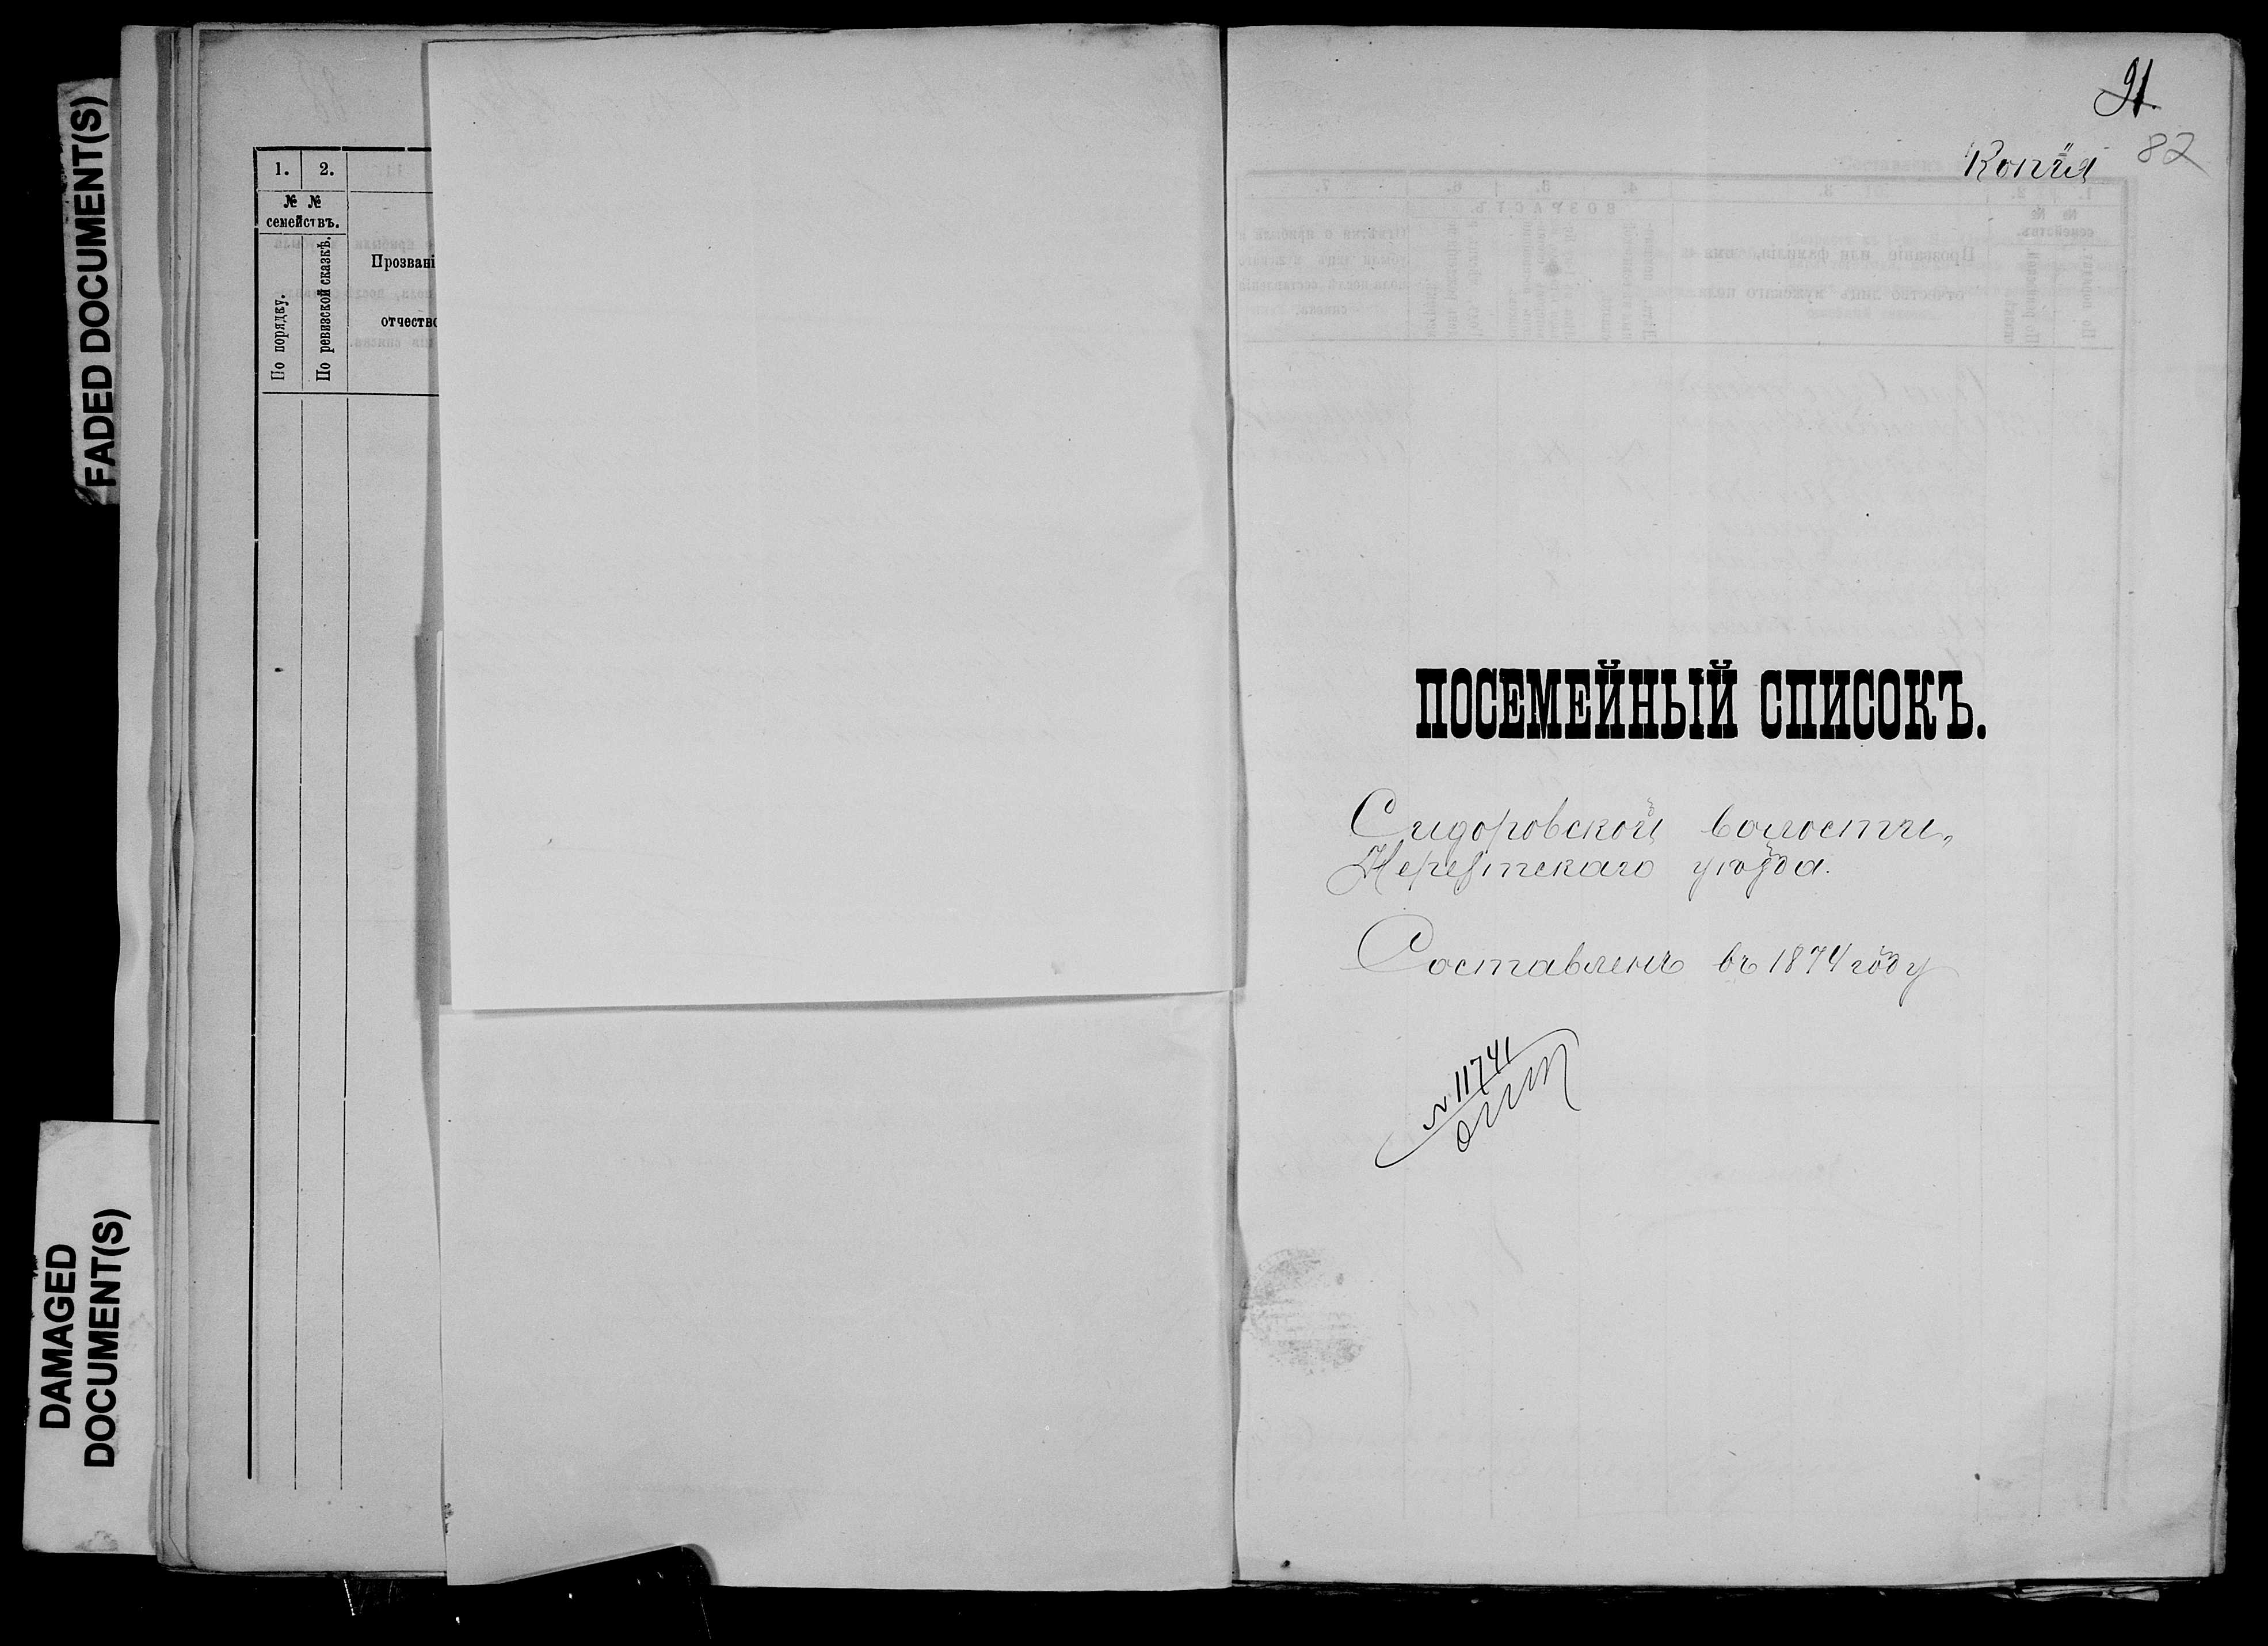 FADED DOCUMENT(S)
DAMAGED
DOCUMENT(S)
1. 2.
№ №
семействъ.
По порядку.
По ревизской сказкѣ.
Прозвані
отчество
91
82
Копія
ПОСЕМЕЙНЫЙ СПИСОКЪ.
Сидоровской волости,
Нерехтскаго уѣзда.
Составленъ въ 1874 году
№ 11741